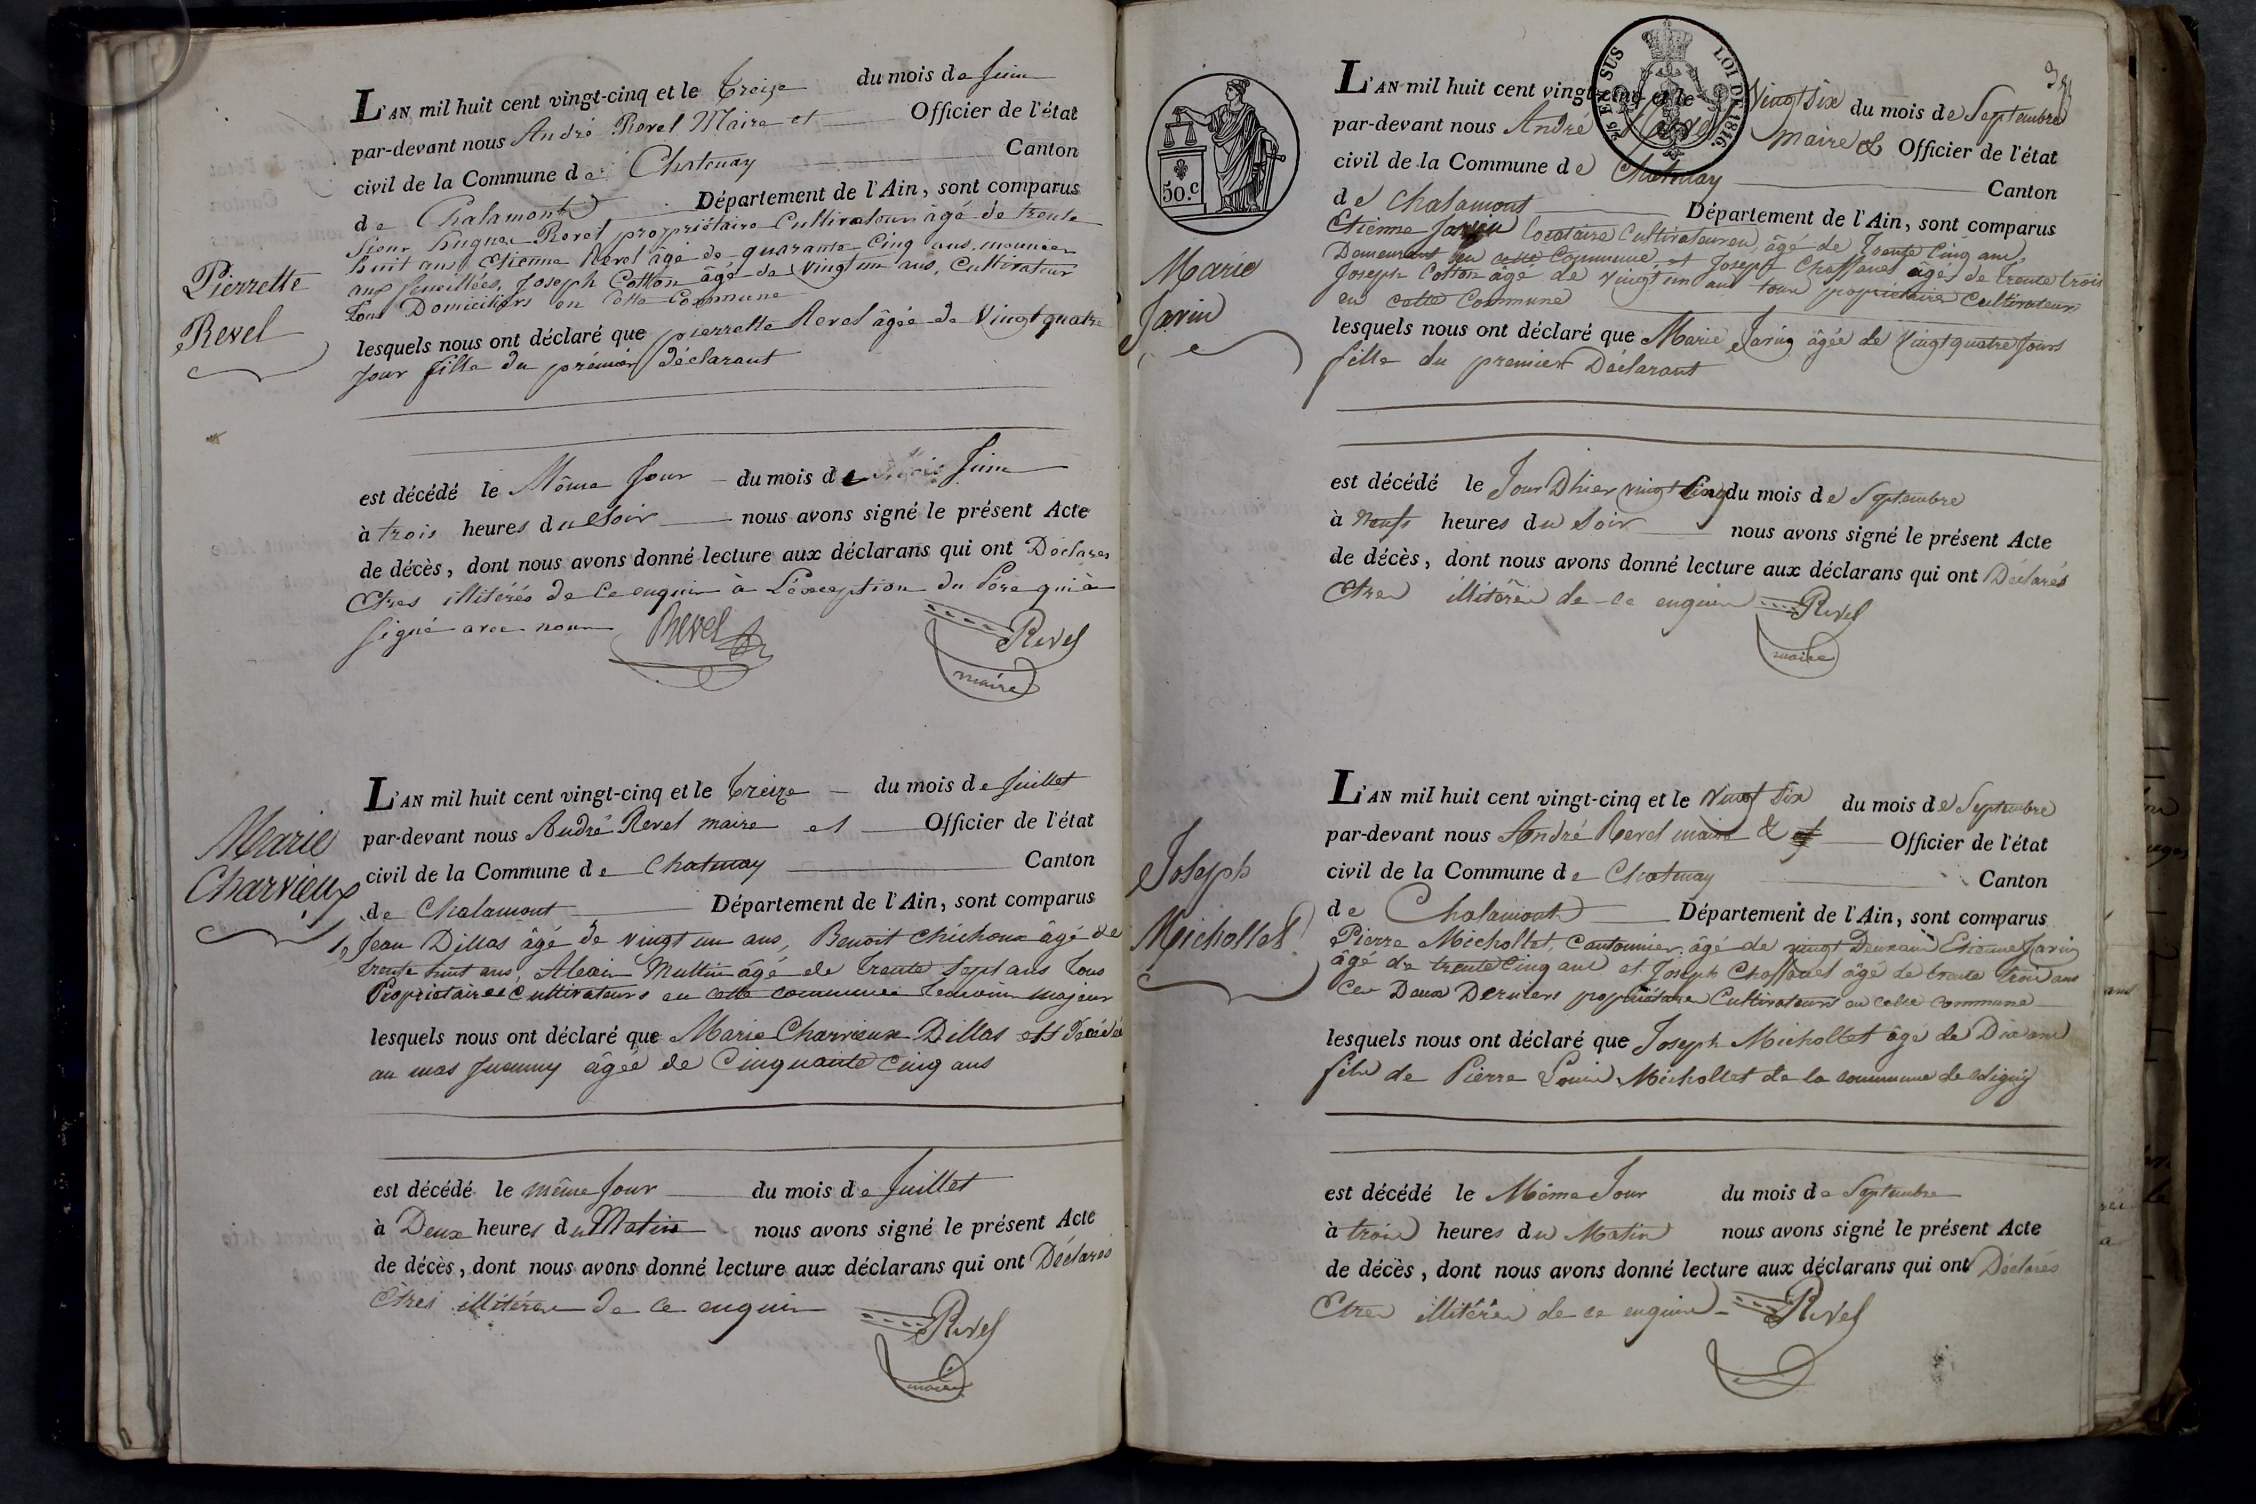 Pierrette
Revel
L'AN mil huit cent vingt-cinq et le treize du mois de Juin
par-devant nous André Revel Maire et Officier de l'état
civil de la Commune de Chatenay Canton
de Chalamont Département de l'Ain, sont comparus
Sieur Hugues Revel propriétaire Cultivateur âgé de trente
huit ans, Etienne Revel âgé de quarante Cinq ans meunier
aux feuillées, Joseph Cotton âgé de vingt un ans, Cultivateur
tous Domiciliers en Cette Commune
lesquels nous ont déclaré que pierrette Revel âgée de Vingt quatre
Jour fille du prémier déclarant
est décédé le Même Jour du mois de Juin
à trois heures du Soir nous avons signé le présent Acte
de décès, dont nous avons donné lecture aux déclarans qui ont Déclarés
Etres illitérés de Ce enquis à L'éxception du Père qui à
signé avec nous Revel Revel
maire
Marie
Charvieux
L'AN mil huit cent vingt-cinq et le treize du mois de Juillet
par-devant nous André Revel maire et Officier de l'état
civil de la Commune de Chatenay Canton
de Chalamont Département de l'Ain, sont comparus
Jean Dillas âgé de vingt un ans, Benoit Chichoux âgé de
trente huit ans, Alexis Multin âgé de trente Sept ans tous
Propriétaires Cultivateurs en cette commune temoins majeur
lesquels nous ont déclaré que Marie Charvieux Dillas
au mas âgée de Cinquante Cinq ans
est décédé le même Jour du mois de Juillet
à Deux heures du Matin nous avons signé le présent Acte
de décès, dont nous avons donné lecture aux déclarans qui ont Déclarés
Etres illitéres de ce enquis Revel
maire
50.c
25 EN SUS LOI DE 1816.
Marie
Jarin
L'AN mil huit cent vingt-cinq et le Vingt Six du mois de Septembre
par-devant nous André Revel maire & Officier de l'état
civil de la Commune de Chatenay Canton
de Chalamont Département de l'Ain, sont comparus
Etienne Jarin locataire Cultivateur âgé de Trente Cinq ans,
Demeurant en cette Commune et Joseph Chaffanel âgés de trente trois
Joseph Cotton âgé de vingt un ans tous propriétaire Cultivateurs
en cette Commune
lesquels nous ont déclaré que Marie Jarin âgée de Vingt quatre Jours
fille du premier Déclarant
est décédé le Jour D'hier vingt Cinq du mois de Septembre
à neufs heures du Soir nous avons signé le présent Acte
de décès, dont nous avons donné lecture aux déclarans qui ont Déclarés
Etres illitérés de ce enquis Revel
maire
Joseph
Michollet
L'AN mil huit cent vingt-cinq et le Vingt Six du mois de Septembre
par-devant nous André Revel maire & Officier de l'état
civil de la Commune de Chatenay Canton
de Chalamont Département de l'Ain, sont comparus
Pierre Michollet, Cantonnier, âgé de vingt Deux ans Etienne Jarin
âgé de trente Cinq ans et Joseph Chaffanel âgé de trente trois ans
Ces Deux Derniers propriétaires Cultivateurs en cette commune
lesquels nous ont déclaré que Joseph Michollet âgé de Dix ans
fils de Pierre Louis Michollet de la commune de
est décédé le Même Jour du mois de Septembre
à trois heures du Matin nous avons signé le présent Acte
de décès, dont nous avons donné lecture aux déclarans qui ont Déclarés
Etres illitérés de ce enquis Revel